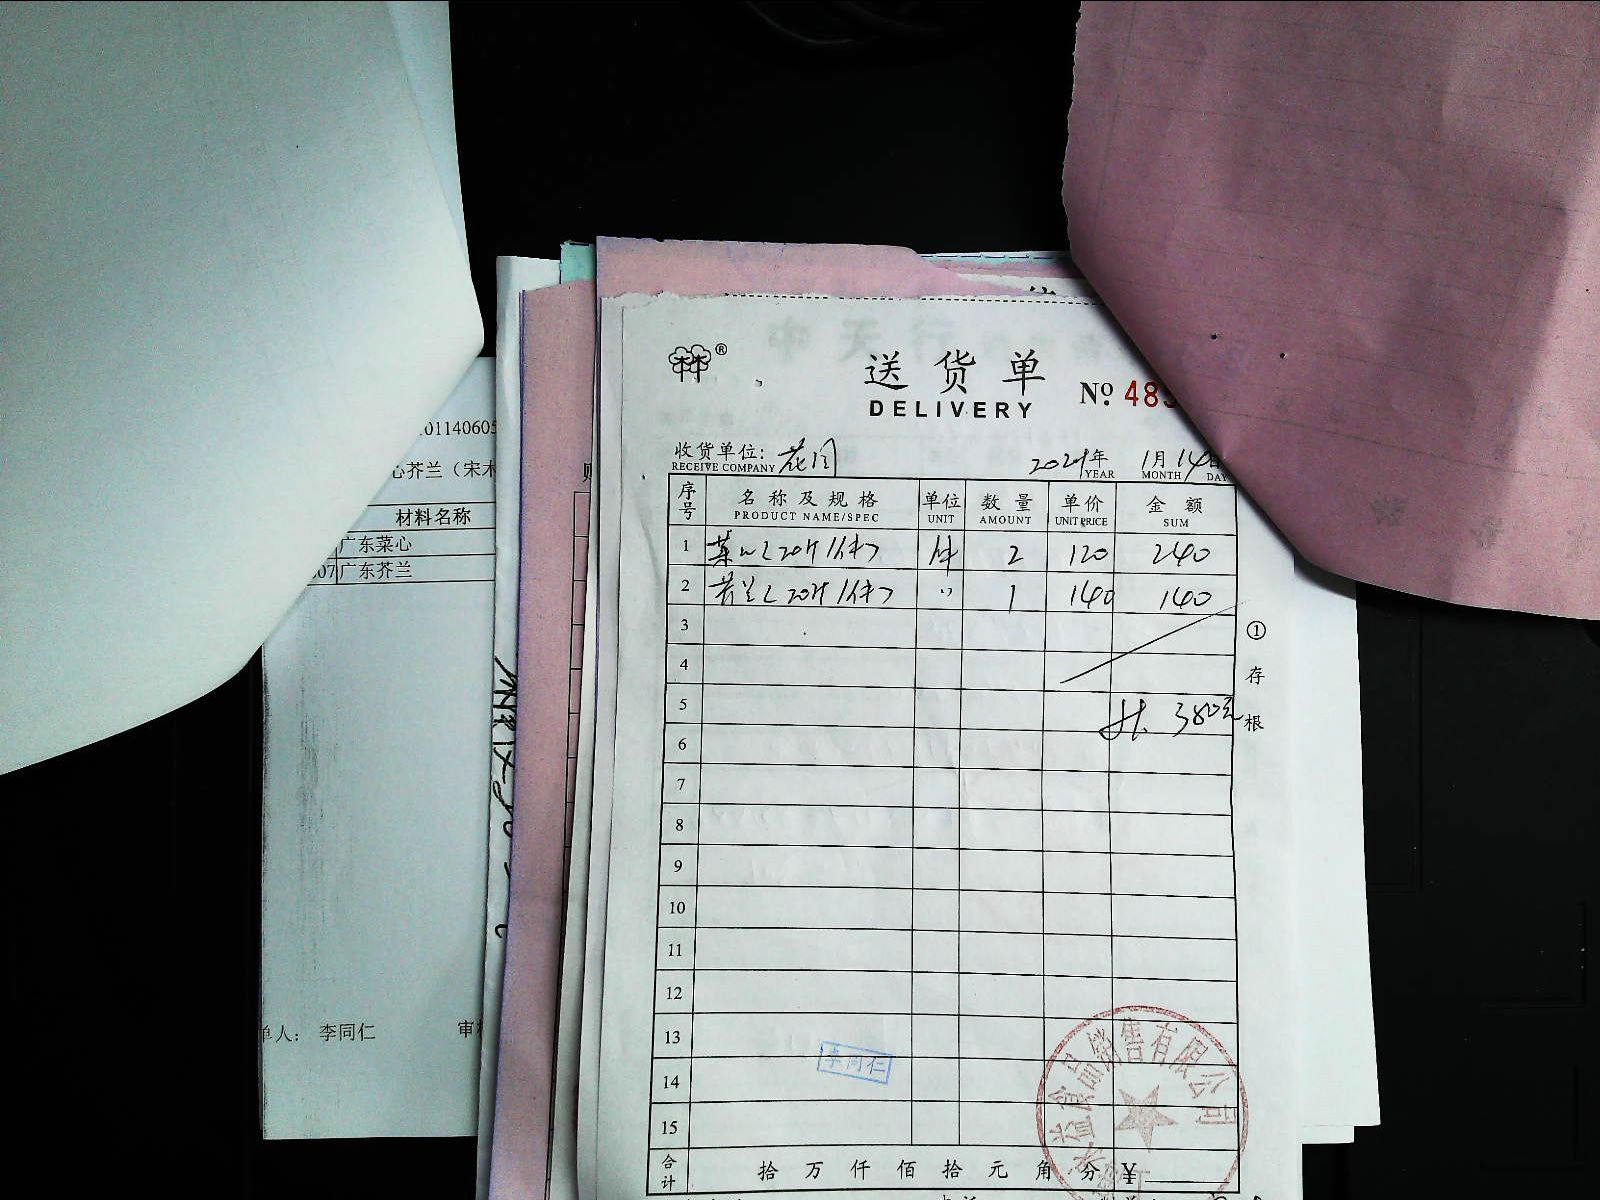 送货单
DELIVERY
№ 485
收货单位: 花间
RECEIVE COMPANY
2021年 1月14日
YEAR MONTH DAY
序号 名称及规格 单位 数量 单价 金额
PRODUCT NAME/SPEC UNIT AMOUNT UNIT PRICE SUM
1 菜心(20斤/件) 件 2 120 240
2 芥兰(20斤/件) 〃 1 140 140
3
4
5 共 380元
6
7
8
9
10
11
12
13
14
15
合计 拾 万 仟 佰 拾 元 角 分 ¥
①存根
李同仁
益食品销售有限公司
01140605
心芥兰（宋木
材料名称
广东菜心
07 广东芥兰
单人： 李同仁 审